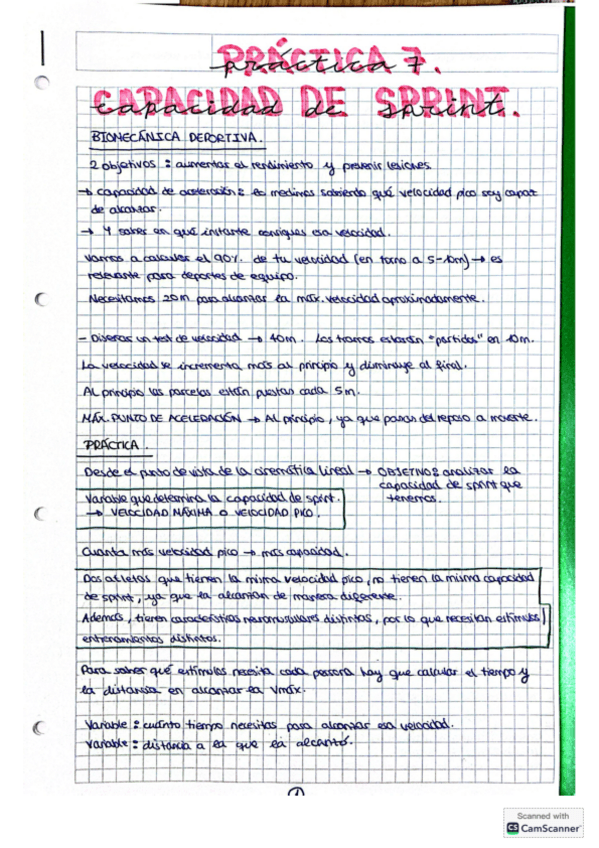 PRÁCTICA 7.
CAPACIDAD DE SPRINT.
BIOMECÁNICA DEPORTIVA.
2 objetivos : aumentar el rendimiento y prevenir lesiones.
→ capacidad de aceleración : la medimos sabiendo qué velocidad pico soy capaz
de alcanzar.
→ Y saber en qué instante consigues esa velocidad.
Vamos a calcular el 90%. de tu velocidad (en torno a 5-10m) → es
relevante para deportes de equipo.
Necesitamos 20m para alcanzar la máx. velocidad aproximadamente.
- Diseñas un test de velocidad → 40m. Los tramos estarán "partidos" en 10m.
La velocidad se incrementa más al principio y disminuye al final.
Al principio las parcelas están puestas cada 5m.
MÁX. PUNTO DE ACELERACIÓN → Al principio, ya que pasas del reposo a moverte.
PRÁCTICA.
Desde el punto de vista de la cinemática lineal → OBJETIVO : analizar la
capacidad de sprint que
tenemos.
Variable que determina la capacidad de sprint.
→ VELOCIDAD MÁXIMA O VELOCIDAD PICO.
Cuanta más velocidad pico → más capacidad.
Dos atletas que tienen la misma velocidad pico, no tienen la misma capacidad
de sprint, ya que la alcanzan de manera diferente.
Además, tienen características neuromusculares distintas, por lo que necesitan estímulos/
entrenamientos distintos.
Para saber qué estímulos necesita cada persona hay que calcular el tiempo y
la distancia en alcanzar la Vmáx.
Variable : cuánto tiempo necesitas para alcanzar esa velocidad.
Variable : distancia a la que la alcanzó.
1
Scanned with
CS CamScanner